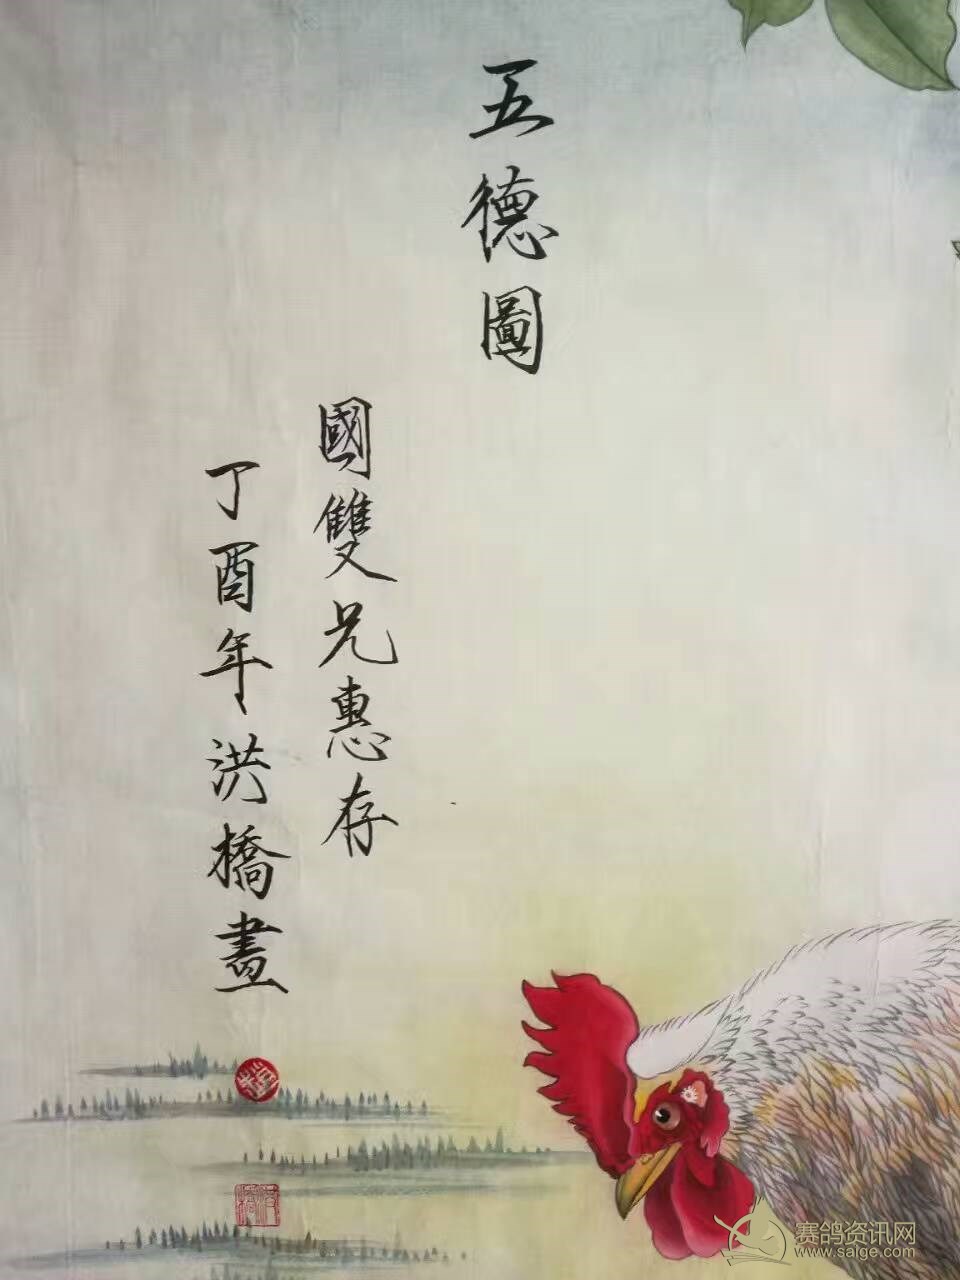 五德圖
國雙兄惠存
丁酉年洪橋畫
赛鸽资讯网
www.saige.com